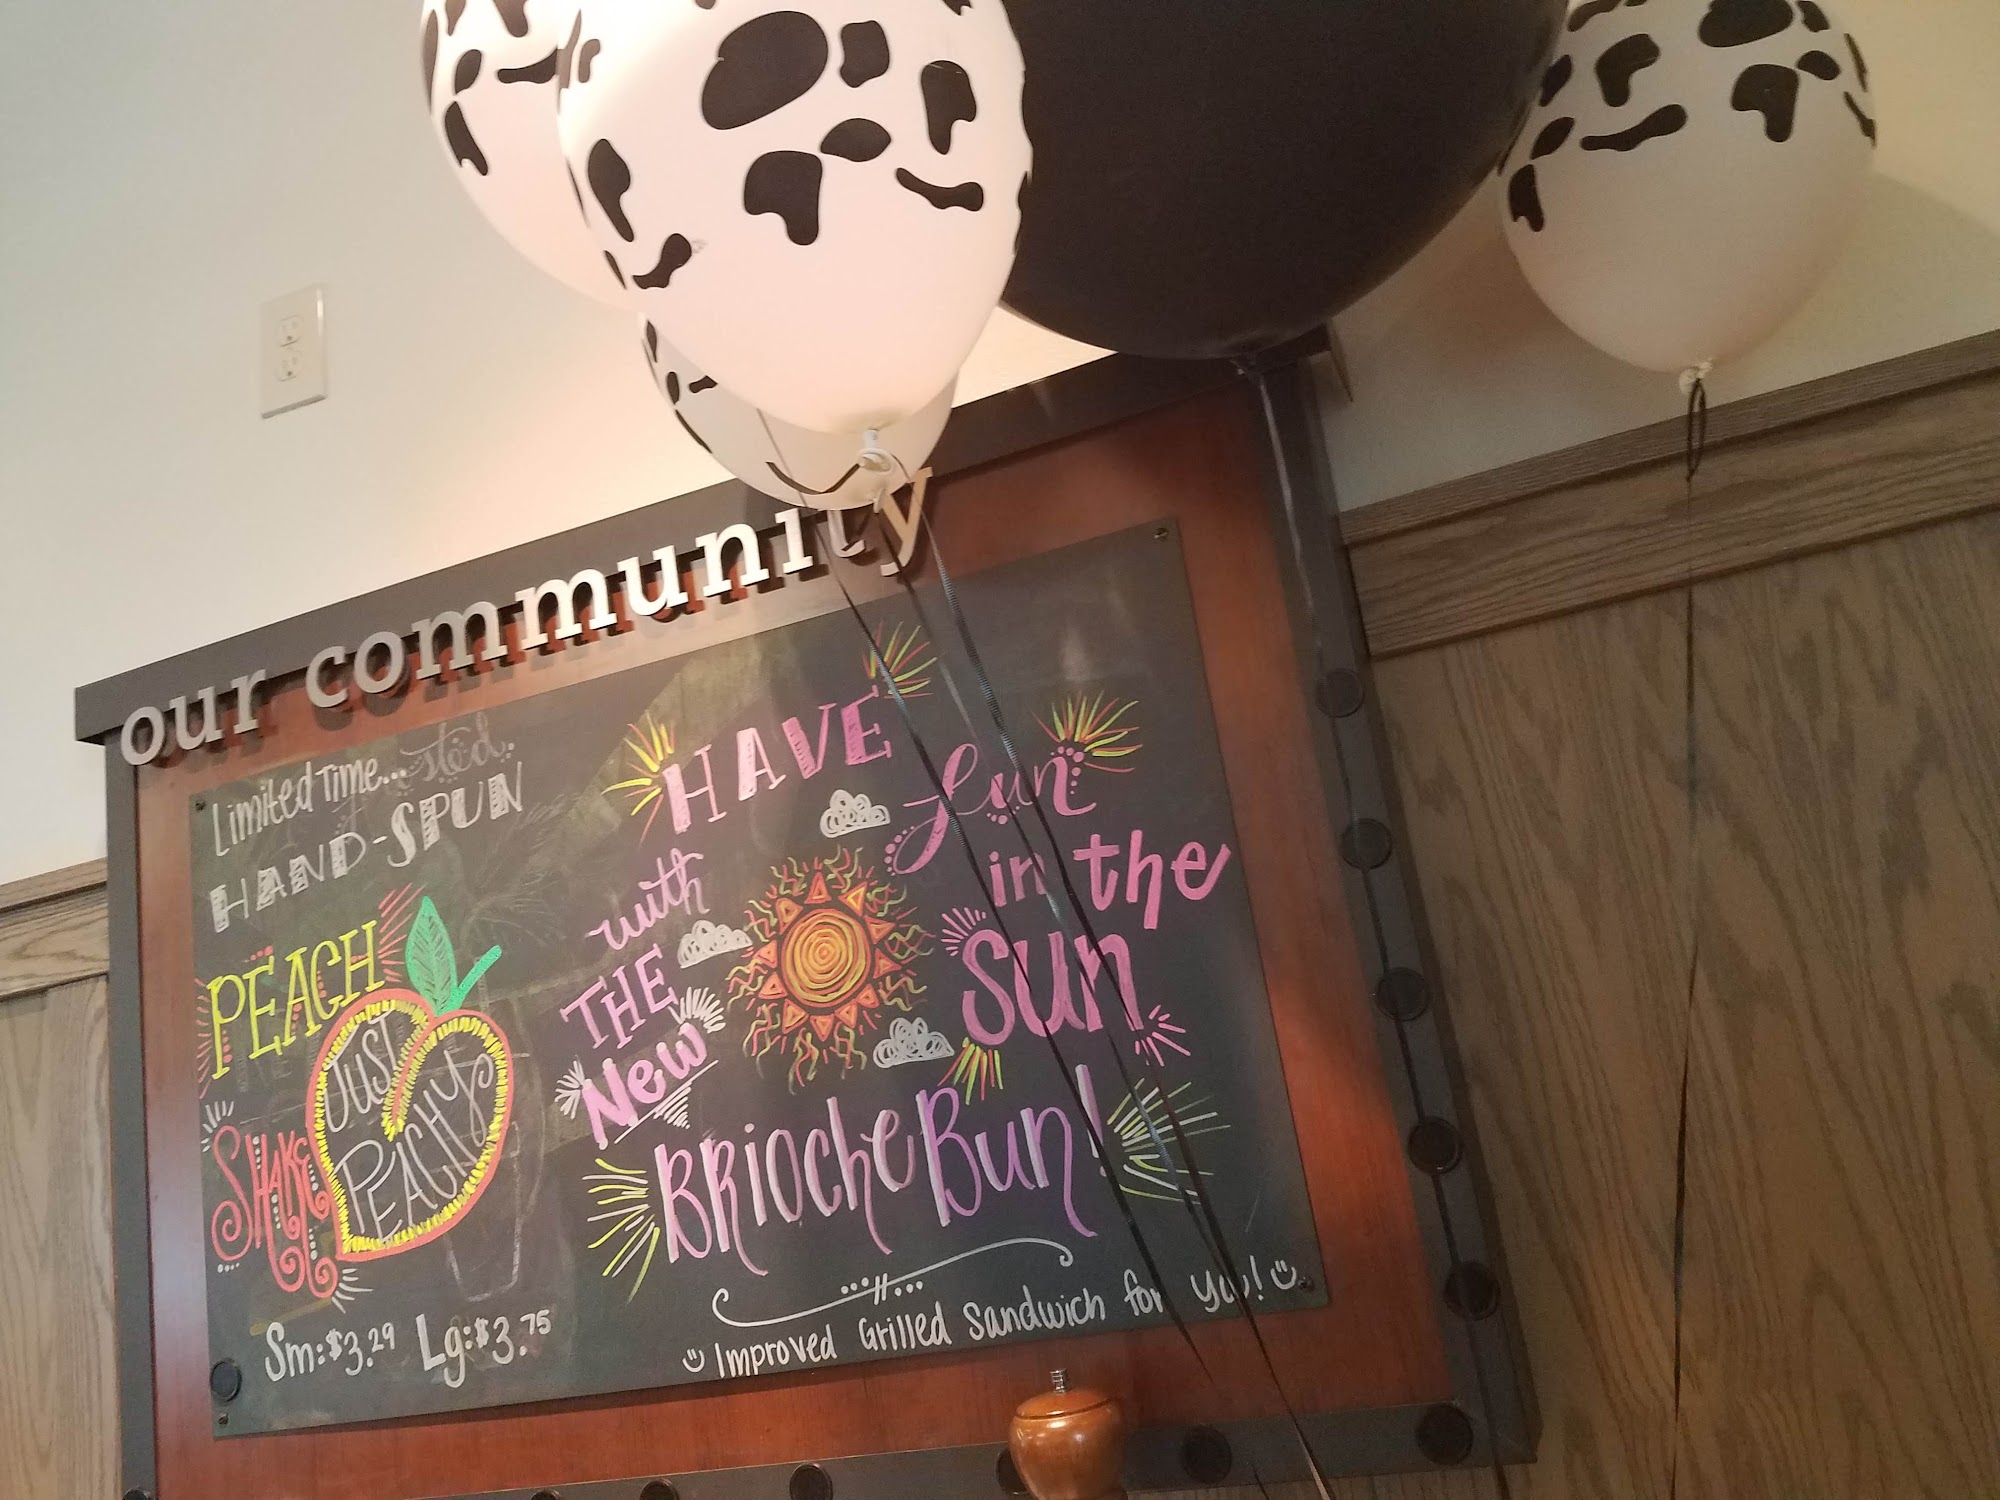 our community
Limited Time...
HAND-SPUN
PEACH
SHAKE
JUST
PEACHY
Sm: $3.29 Lg: $3.75
HAVE
fun
in the
sun
with
THE
New
BRIOCHE Bun!
Improved Grilled Sandwich for you!